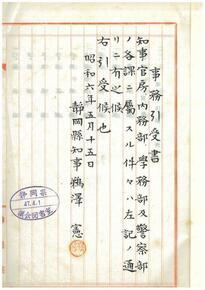 事務引受書
知事官房内務部学務部及警察部
ノ各課ニ屬スル件々ハ左記ノ通
リニ有之候
右引受候也
昭和六年五月十五日
靜岡縣知事鵜澤憲
静岡県
47.4.1